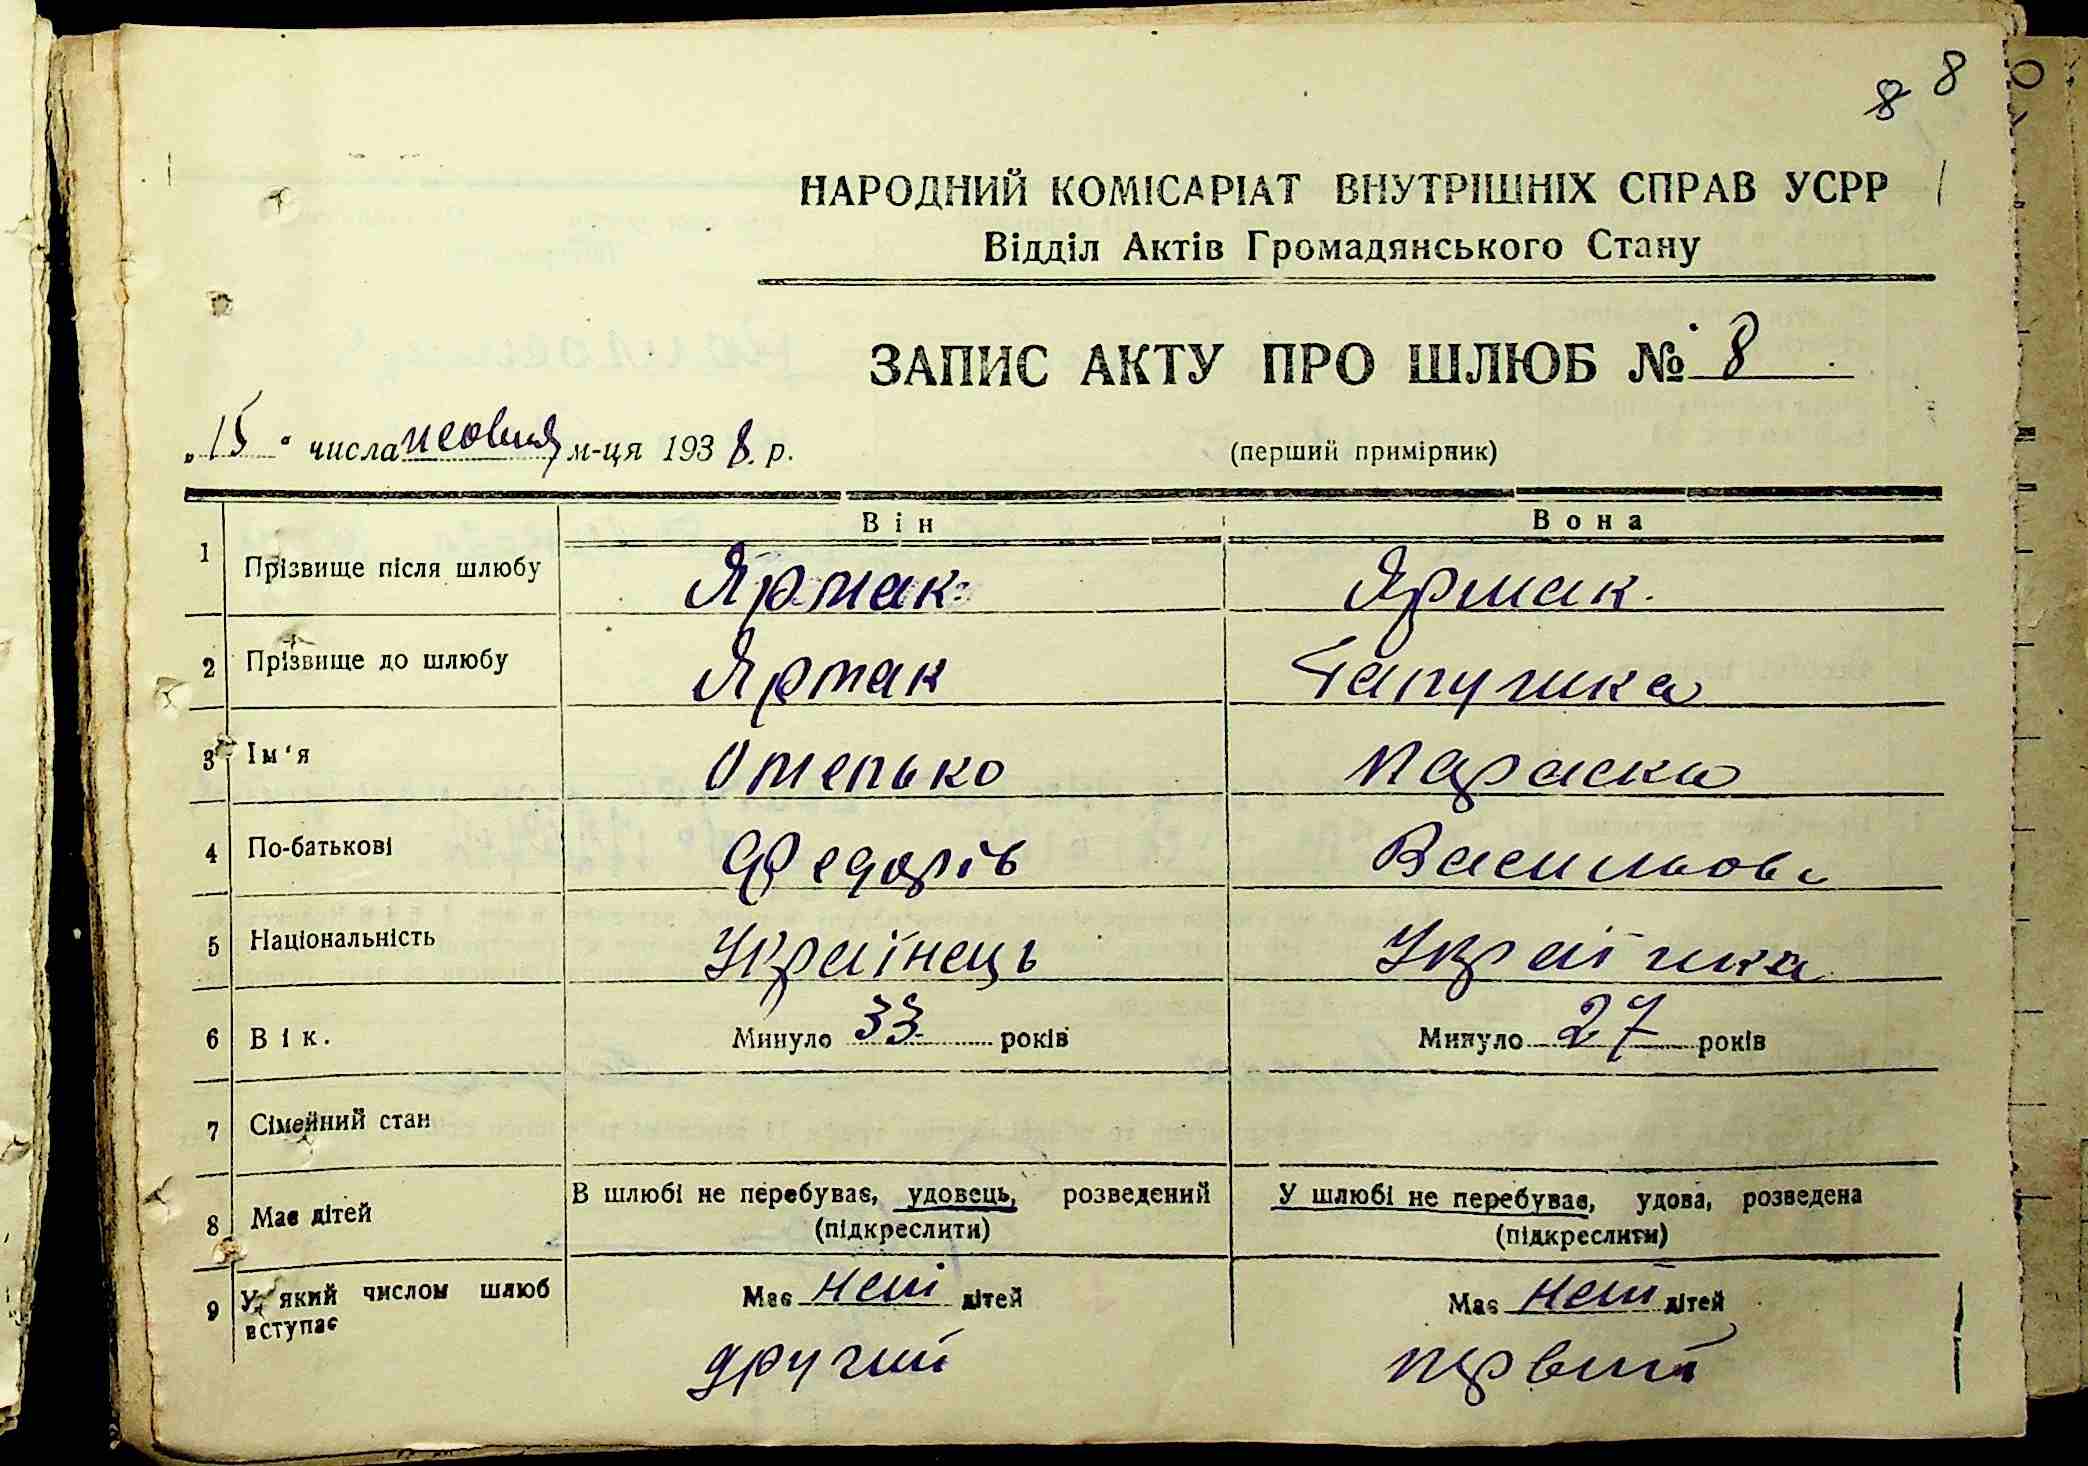 8 8
НАРОДНИЙ КОМІСАРІАТ ВНУТРІШНІХ СПРАВ УСРР
Відділ Актів Громадянського Стану
ЗАПИС АКТУ ПРО ШЛЮБ № 8
„15“ числа жовтня м-ця 1938 р.
(перший примірник)
Він Вона
1 Прізвище після шлюбу Ярмак Ярмак
2 Прізвище до шлюбу Ярмак
3 Ім'я Омелько Параска
4 По-батькові Федорів Васильовн
5 Національність Українець Украінка
6 Вік. Минуло 33 років Минуло 27 років
7 Сімейний стан
8 Має дітей В шлюбі не перебуває, удовець, розведений У шлюбі не перебуває, удова, розведена
(підкреслити) (підкреслити)
9 У який числом шлюб вступає Має немі дітей Має немі дітей
другий первий